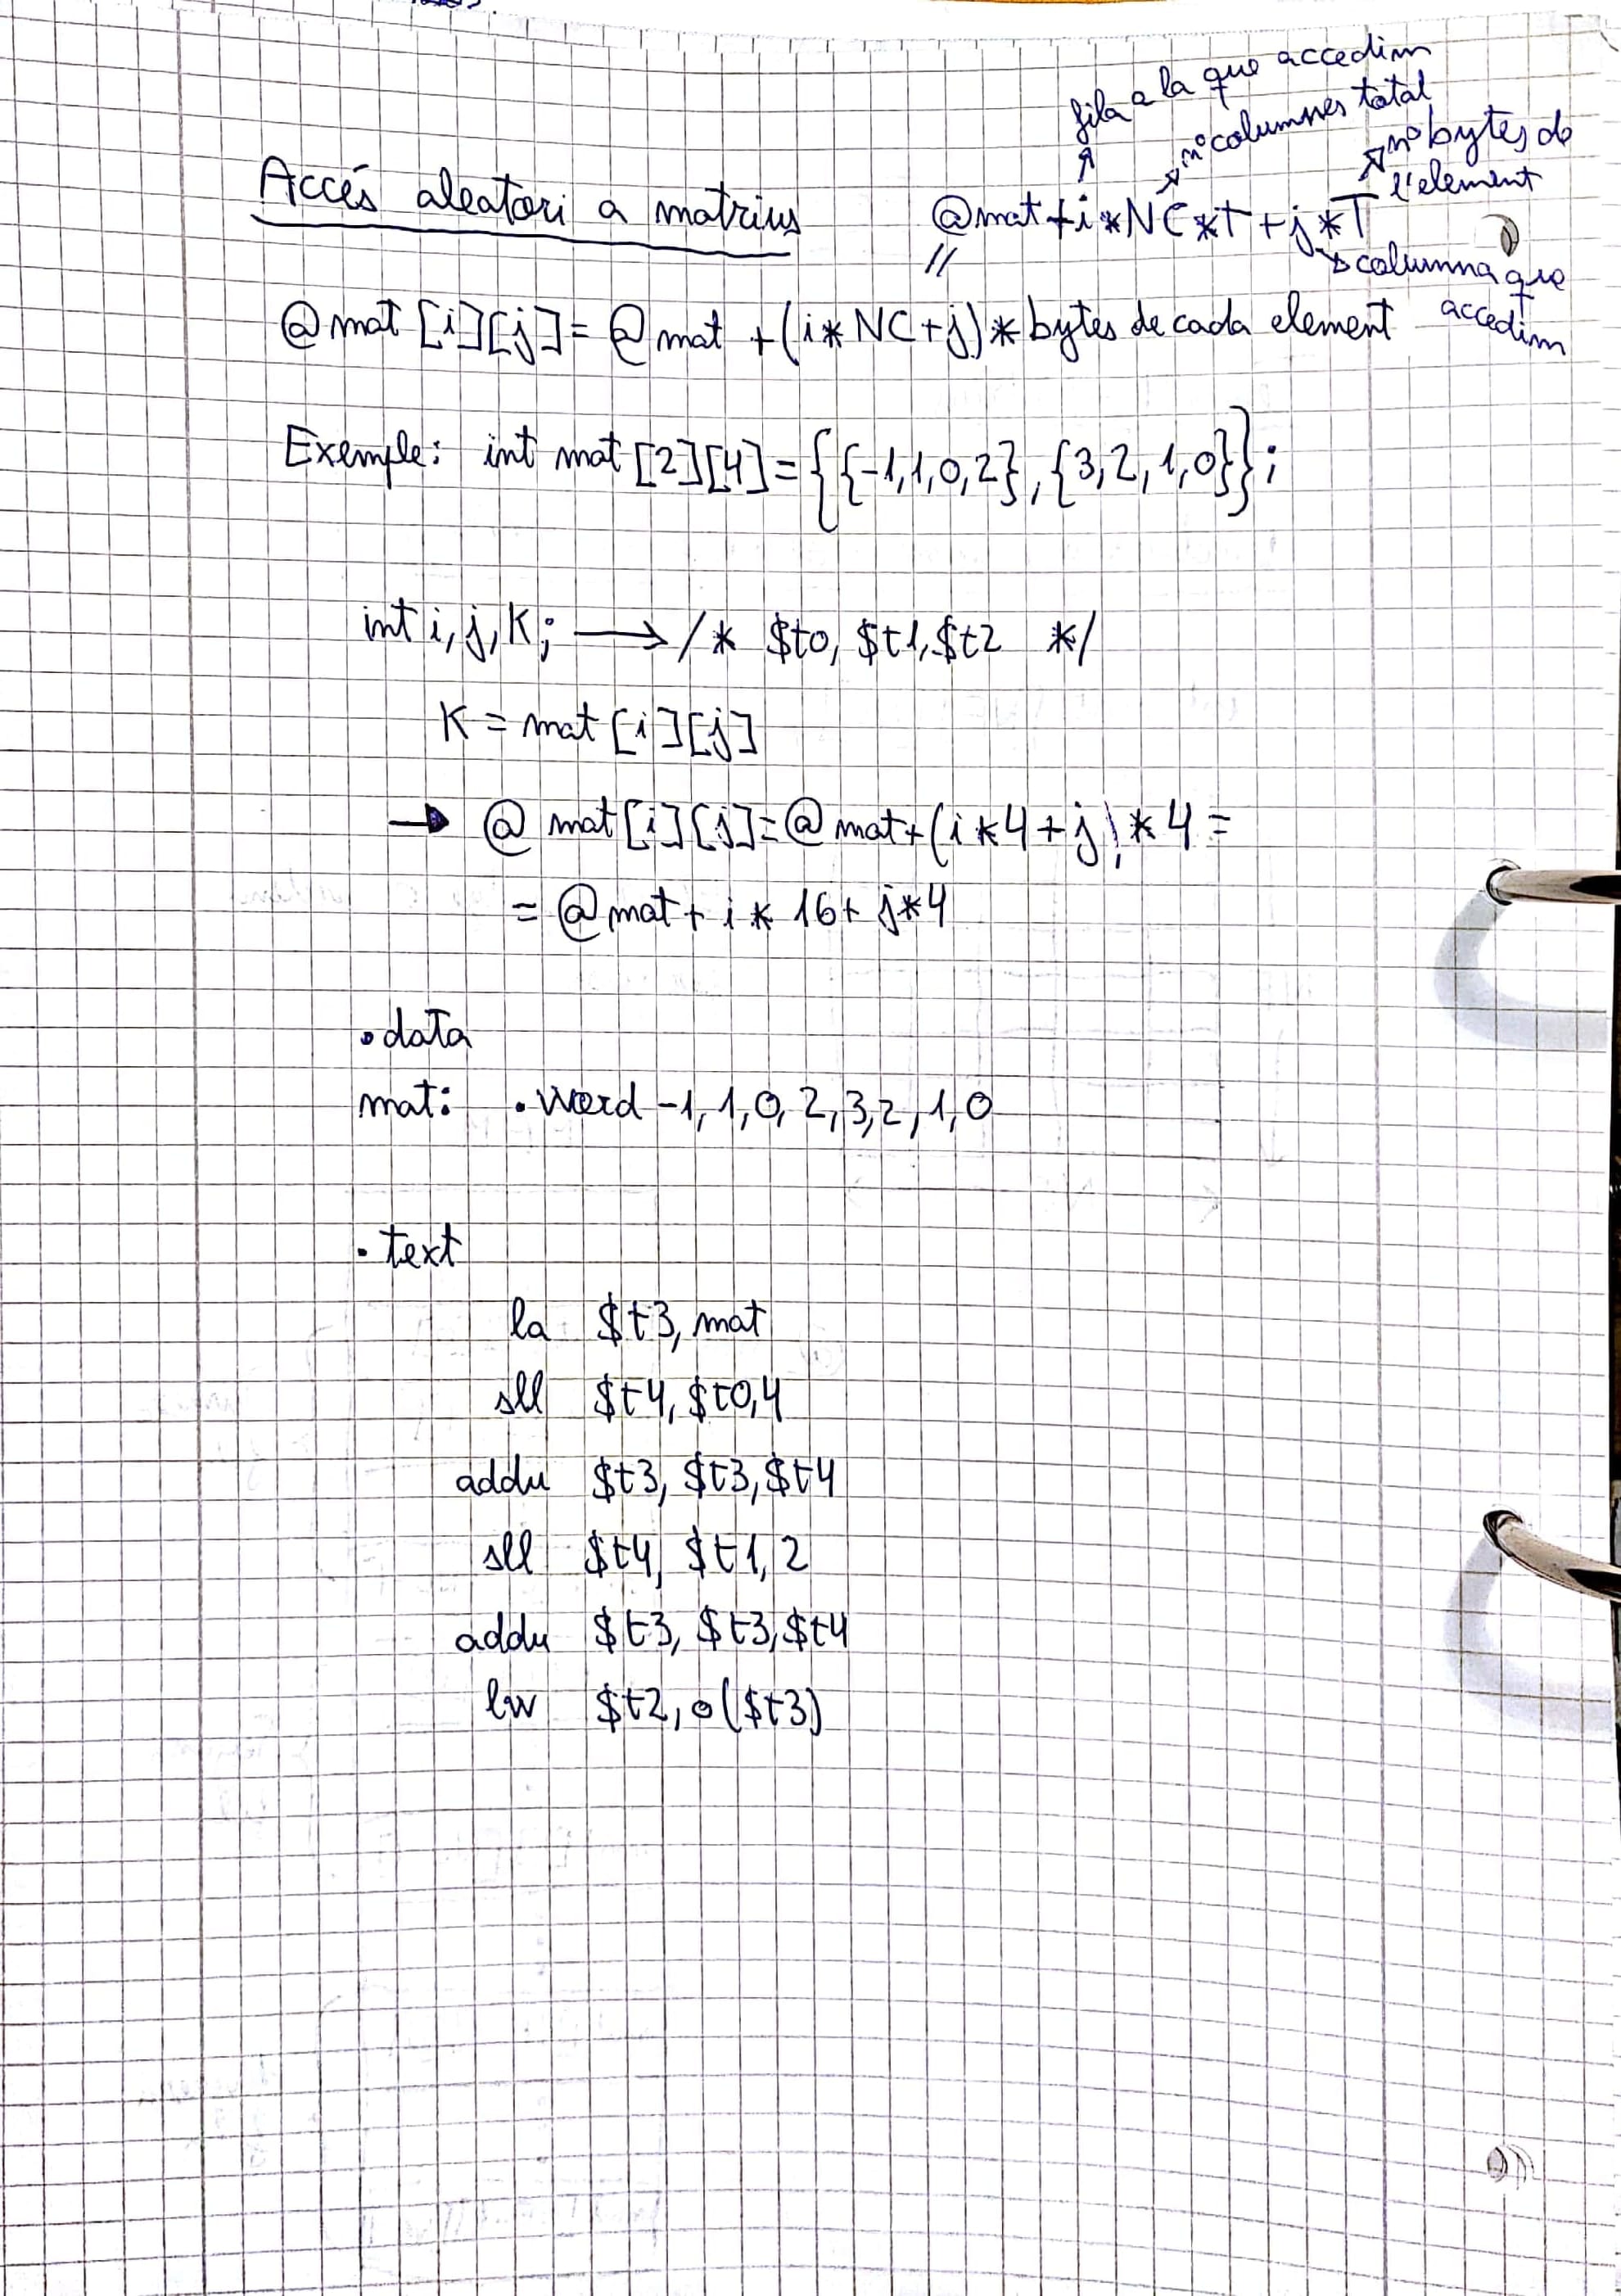 fila a la que accedim
nº columnes total
nº bytes de
l'element
Accés aleatori a matrius
@mat + i * NC * T + j * T
columna que
accedim
//
@mat [i][j] = @mat + (i * NC + j) * bytes de cada element
Exemple: int mat [2][4] = {{-1,1,0,2}, {3,2,1,0}};
int i, j, K; → /* $t0, $t1, $t2 */
K = mat [i][j]
→ @ mat [i][j] = @ mat + (i * 4 + j) * 4 =
= @mat + i * 16 + j * 4
.data
mat: .word -1, 1, 0, 2, 3, 2, 1, 0
.text
la $t3, mat
sll $t4, $t0, 4
addu $t3, $t3, $t4
sll $t4, $t1, 2
addu $t3, $t3, $t4
lw $t2, 0($t3)